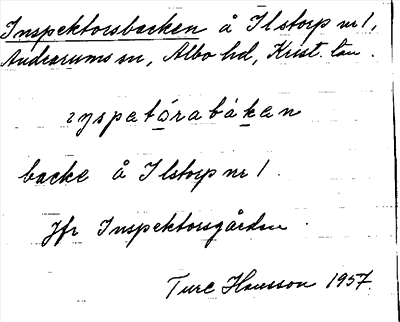 Inspektorsbacken å Ilstorp nr 1,
Andrarums sn, Albo hd, Krist. län.
ıŋspatórabákan
backe å Ilstorp nr 1.
Jfr Inspektorsgården.
Ture Hansson 1957.